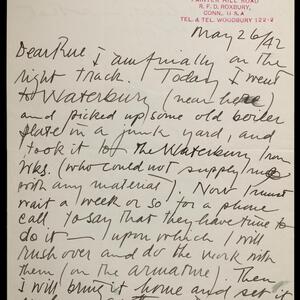 PAINTER HILL ROAD
R.F.D. ROXBURY
CONN. U S A
TEL. & TEL. WOODBURY 122-2
May 26/42
Dear Rue I am finally on the
right track. Today I went
to Waterbury (near here)
and picked up some old boiler
plate in a junk yard, and
took it to the Waterbury Iron
Wks. (who could not supply me
with any material). Now I must
wait a week or so for a phone
call to say that they have time to
do it — upon which I will
rush over and do the work with
them (on the armature). Then
I will bring it home and set it